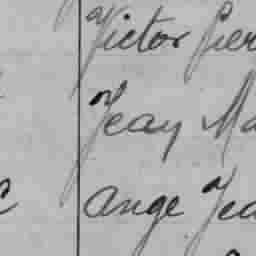 Victor Pier
Jean Ma
Ange Jea